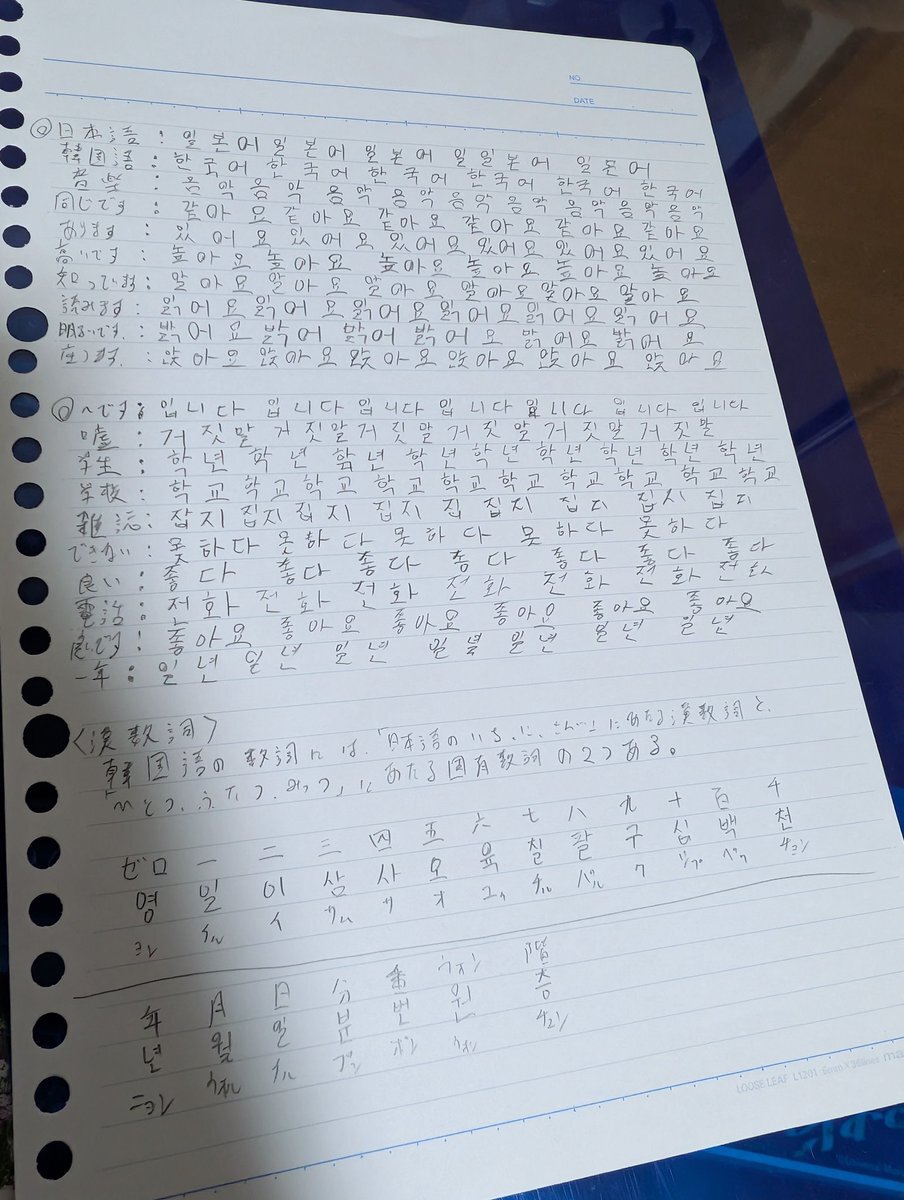 NO.
DATE
◎日本語 : 일본어 일본어 일본어 일일본어 일본어
韓国語 : 한국어 한국어 한국어 한국어 한국어 한국어
音楽 : 음악음악 음악 음악 음악 음악 음악 음악 음악
同じです : 같아요 같아요 같아요 같아요 같아요 같아요
あります : 있어요 있어요 있어요 있어요 있어요 있어요
高いです : 높아요 높아요 높아요 높아요 높아요 높아요
知っています : 알아요 알아요 알아요 알아요 알아요 알아요
読みます : 읽어요 읽어요 읽어요 읽어요 읽어요 읽어요
明るいです : 밝어요 밝어 밝어 밝어요 밝어요 밝어요
座ります : 앉아요 앉아요 앉아요 앉아요 앉아요 앉아요
◎〜です : 입니다 입니다 입니다 입니다 입니다 입니다 입니다
嘘 : 거짓말 거짓말 거짓말 거짓말 거짓말 거짓말
学生 : 학년 학년 학년 학년 학년 학년 학년 학년 학년
学校 : 학교 학교 학교 학교 학교 학교 학교 학교 학교
雑誌 : 잡지 집지 집지 집지 집 집지 집지 집지 집지
できない : 못하다 못하다 못하다 못하다 못하다
良い : 좋다 좋다 좋다 좋다 좋다 좋다 좋다
電話 : 전화 전화 전화 전화 전화 전화 전화
良いです! : 좋아요 좋아요 좋아요 좋아요 좋아요 좋아요
一年 : 일년 일년 일년 일년 일년 일년 일년
〈漢数詞〉
韓国語の数詞には、「日本語のいち、に、さん」にあたる漢数詞と、
「ひとつ、ふたつ、みっつ」にあたる固有数詞の2つある。
ゼロ 一 二 三 四 五 六 七 八 九 十 百 千
영 일 이 삼 사 오 육 칠 팔 구 십 백 천
ヨン イル イ サム サ オ ユク チル パル ク シプ ペク チョン
年 月 日 分 番 ウォン 階
년 월 일 분 번 원 층
ニョン ウォル イル ブン ボン ウォン チュン
LOOSE LEAF L1201・6mm×36lines